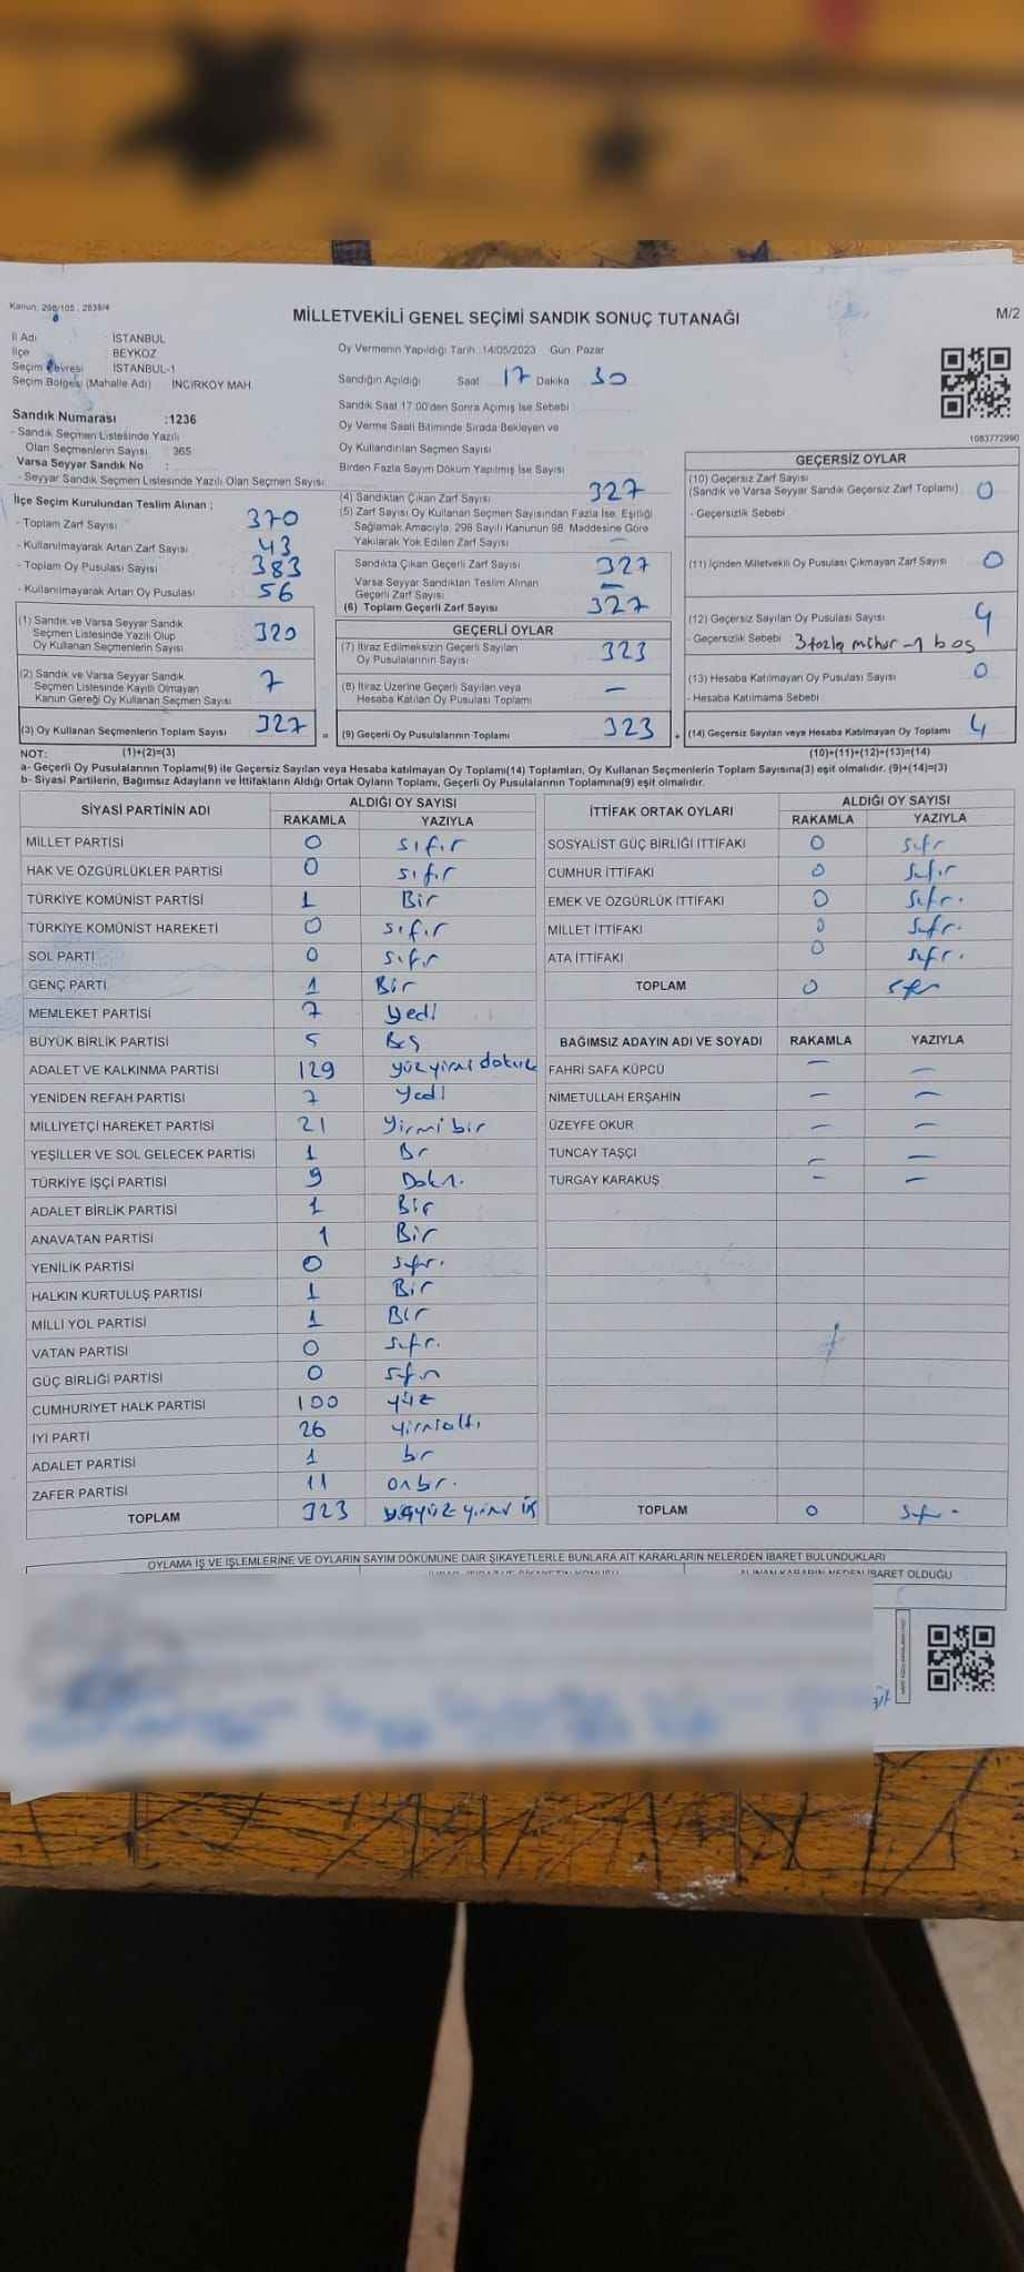 Kanun: 298/105 ; 2839/4
MİLLETVEKİLİ GENEL SEÇİMİ SANDIK SONUÇ TUTANAĞI
M/2
İl Adı İSTANBUL
İlçe BEYKOZ
Seçim Çevresi İSTANBUL-1
Seçim Bölgesi (Mahalle Adı) İNCİRKÖY MAH.
Sandık Numarası :1236
- Sandık Seçmen Listesinde Yazılı
Olan Seçmenlerin Sayısı 365
Varsa Seyyar Sandık No :
- Seyyar Sandık Seçmen Listesinde Yazılı Olan Seçmen Sayısı:
Oy Vermenin Yapıldığı Tarih :14/05/2023 Gün: Pazar
Sandığın Açıldığı Saat 17 Dakika 30
Sandık Saat 17:00'den Sonra Açımış İse Sebebi
Oy Verme Saati Bitiminde Sırada Bekleyen ve
Oy Kullandırılan Seçmen Sayısı
Birden Fazla Sayım Döküm Yapılmış İse Sayısı
1083772990
İlçe Seçim Kurulundan Teslim Alınan :
- Toplam Zarf Sayısı 370
- Kullanılmayarak Artan Zarf Sayısı 43
- Toplam Oy Pusulası Sayısı 383
- Kullanılmayarak Artan Oy Pusulası 56
(1) Sandık ve Varsa Seyyar Sandık
Seçmen Listesinde Yazılı Olup
Oy Kullanan Seçmenlerin Sayısı 320
(2) Sandık ve Varsa Seyyar Sandık
Seçmen Listesinde Kayıtlı Olmayan
Kanun Gereği Oy Kullanan Seçmen Sayısı 7
(3) Oy Kullanan Seçmenlerin Toplam Sayısı 327 =
(4) Sandıktan Çıkan Zarf Sayısı 327
(5) Zarf Sayısı Oy Kullanan Seçmen Sayısından Fazla İse, Eşitliği
Sağlamak Amacıyla, 298 Sayılı Kanunun 98. Maddesine Göre
Yakılarak Yok Edilen Zarf Sayısı —
Sandıkta Çıkan Geçerli Zarf Sayısı 327
Varsa Seyyar Sandıktan Teslim Alınan
Geçerli Zarf Sayısı —
(6) Toplam Geçerli Zarf Sayısı 327
GEÇERLİ OYLAR
(7) İtiraz Edilmeksizin Geçerli Sayılan
Oy Pusulalarının Sayısı 323
(8) İtiraz Üzerine Geçerli Sayılan veya
Hesaba Katılan Oy Pusulası Toplamı —
(9) Geçerli Oy Pusulalarının Toplamı 323 +
GEÇERSİZ OYLAR
(10) Geçersiz Zarf Sayısı
(Sandık ve Varsa Seyyar Sandık Geçersiz Zarf Toplamı) 0
- Geçersizlik Sebebi
(11) İçinden Milletvekili Oy Pusulası Çıkmayan Zarf Sayısı 0
(12) Geçersiz Sayılan Oy Pusulası Sayısı 4
- Geçersizlik Sebebi 3 fazla mühür - 1 boş
(13) Hesaba Katılmayan Oy Pusulası Sayısı 0
- Hesaba Katılmama Sebebi
(14) Geçersiz Sayılan veya Hesaba Katılmayan Oy Toplamı 4
NOT: (1)+(2)=(3) (10)+(11)+(12)+(13)=(14)
a- Geçerli Oy Pusulalarının Toplamı(9) ile Geçersiz Sayılan veya Hesaba katılmayan Oy Toplamı(14) Toplamları, Oy Kullanan Seçmenlerin Toplam Sayısına(3) eşit olmalıdır. (9)+(14)=(3)
b- Siyasi Partilerin, Bağımsız Adayların ve İttifakların Aldığı Ortak Oyların Toplamı, Geçerli Oy Pusulalarının Toplamına(9) eşit olmalıdır.
SİYASİ PARTİNİN ADI ALDIĞI OY SAYISI
RAKAMLA YAZIYLA
MİLLET PARTİSİ 0 sıfır
HAK VE ÖZGÜRLÜKLER PARTİSİ 0 sıfır
TÜRKİYE KOMÜNİST PARTİSİ 1 Bir
TÜRKİYE KOMÜNİST HAREKETİ 0 sıfır
SOL PARTİ 0 sıfır
GENÇ PARTİ 1 Bir
MEMLEKET PARTİSİ 7 yedi
BÜYÜK BİRLİK PARTİSİ 5 Beş
ADALET VE KALKINMA PARTİSİ 129 yüzyirmi dokuz
YENİDEN REFAH PARTİSİ 7 Yedi
MİLLİYETÇİ HAREKET PARTİSİ 21 Yirmi bir
YEŞİLLER VE SOL GELECEK PARTİSİ 1 Br
TÜRKİYE İŞÇİ PARTİSİ 9 Dokz.
ADALET BİRLİK PARTİSİ 1 Bir
ANAVATAN PARTİSİ 1 Bir
YENİLİK PARTİSİ 0 sıfır.
HALKIN KURTULUŞ PARTİSİ 1 Bir
MİLLİ YOL PARTİSİ 1 Bir
VATAN PARTİSİ 0 sıfır.
GÜÇ BİRLİĞİ PARTİSİ 0 sıfır
CUMHURİYET HALK PARTİSİ 100 yüz
İYİ PARTİ 26 yirmialtı
ADALET PARTİSİ 1 br
ZAFER PARTİSİ 11 onbr.
TOPLAM 323 üçyüz yirmi üç
İTTİFAK ORTAK OYLARI ALDIĞI OY SAYISI
RAKAMLA YAZIYLA
SOSYALİST GÜÇ BİRLİĞİ İTTİFAKI 0 sıfr
CUMHUR İTTİFAKI 0 sıfır
EMEK VE ÖZGÜRLÜK İTTİFAKI 0 sıfr.
MİLLET İTTİFAKI 0 sıfr.
ATA İTTİFAKI 0 sıfr.
TOPLAM 0 sıfr
BAĞIMSIZ ADAYIN ADI VE SOYADI RAKAMLA YAZIYLA
FAHRİ SAFA KÜPCÜ — —
NİMETULLAH ERŞAHİN — —
ÜZEYFE OKUR — —
TUNCAY TAŞÇI — —
TURGAY KARAKUŞ — —
TOPLAM 0 sıfr
OYLAMA İŞ VE İŞLEMLERİNE VE OYLARIN SAYIM DÖKÜMÜNE DAİR ŞİKAYETLERLE BUNLARA AİT KARARLARIN NELERDEN İBARET BULUNDUKLARI
ALINAN KARARIN NEDEN İBARET OLDUĞU